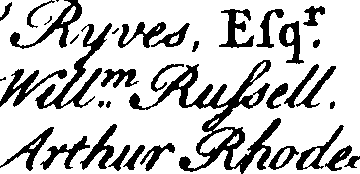 Ryves, Eſqr.
Willm. Ruſsell.
Arthur Rhode